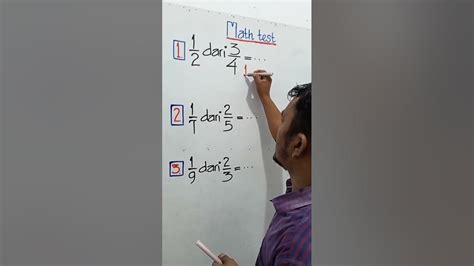 Math test
1 1/2 dari 3/4 = ...
1
2 1/7 dari 2/5 = ...
3 1/9 dari 2/3 = ...